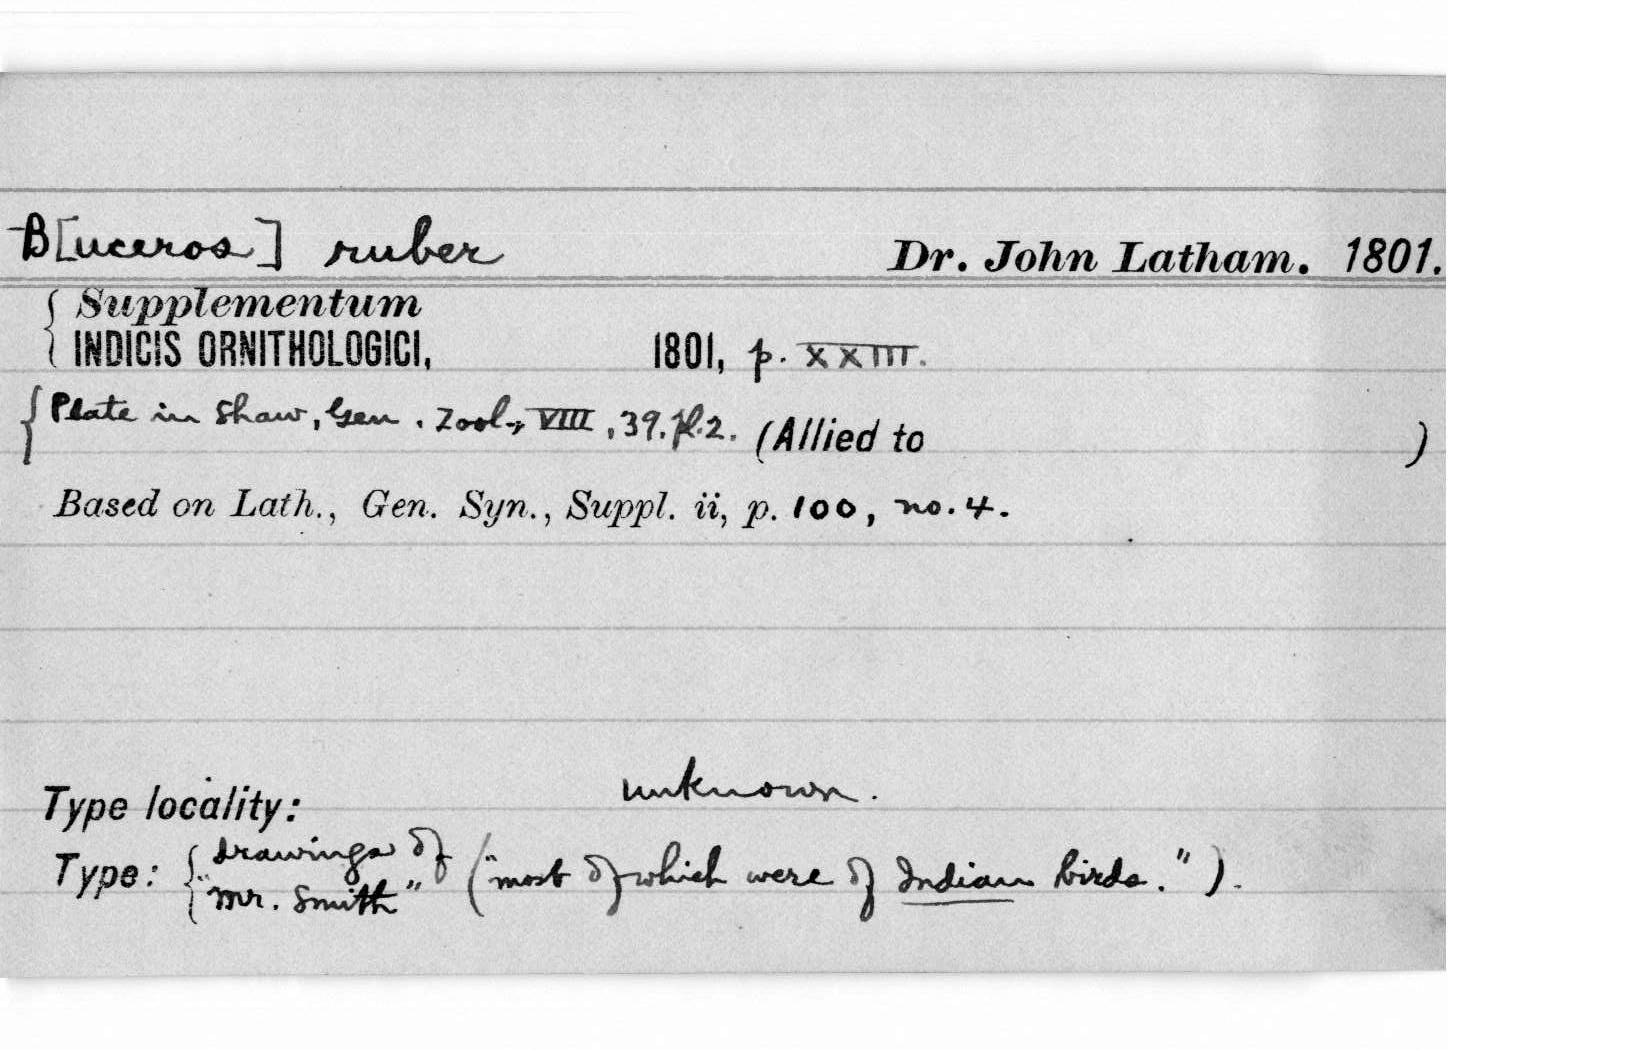 B[uceros] ruber Dr. John Latham. 1801.
Supplementum
INDICIS ORNITHOLOGICI, 1801, p. XXIII.
Plate in Shaw, Gen. Zool., VIII, 39. pl. 2. (Allied to )
Based on Lath., Gen. Syn., Suppl. ii, p. 100, no. 4.
Type locality: unknown.
Type: drawings of "Mr. Smith" ("most of which were of Indian birds.").